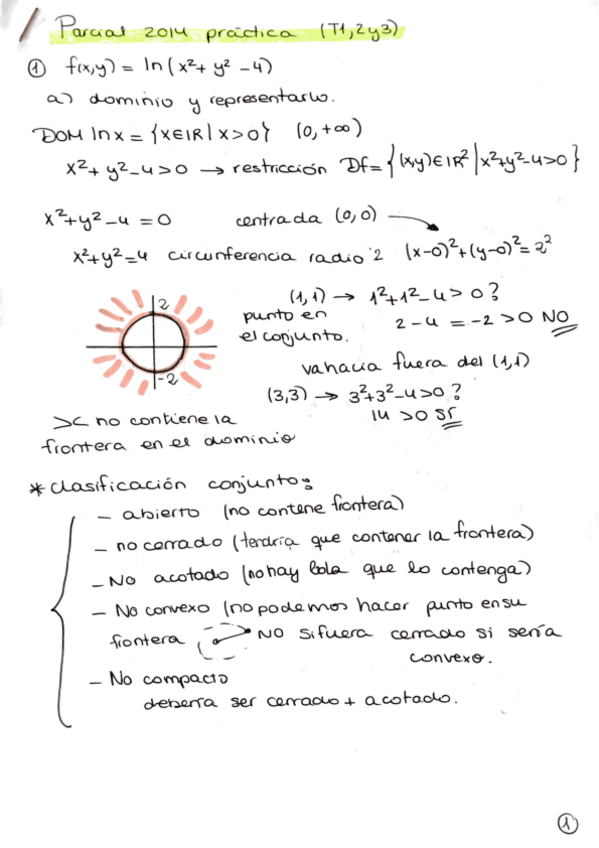 Parcial 2014 práctica (T1,2y3)
① f(x,y) = ln(x²+ y² -4)
a) dominio y representarlo.
DOM ln x = {x∈IR | x>0} (0,+∞)
x²+ y²-4>0 → restricción Df={(x,y)∈IR² | x²+y²-4>0}
x²+y²-4 = 0 centrada (0,0)
x²+y²=4 circunferencia radio 2 (x-0)²+(y-0)²=2²
2
-2
(1,1) → 1²+1²-4>0?
punto en
el conjunto.
2-4 = -2 >0 NO
va hacia fuera del (1,1)
(3,3) → 3²+3²-4>0?
14 >0 sí
>< no contiene la
frontera en el dominio
* clasificación conjunto:
- abierto (no contene frontera)
- no cerrado (tendría que contener la frontera)
- No acotado (no hay bola que lo contenga)
- No convexo (no podemos hacer punto en su
frontera NO si fuera cerrado si sería
convexo.
- No compacto
debería ser cerrado + acotado.
①